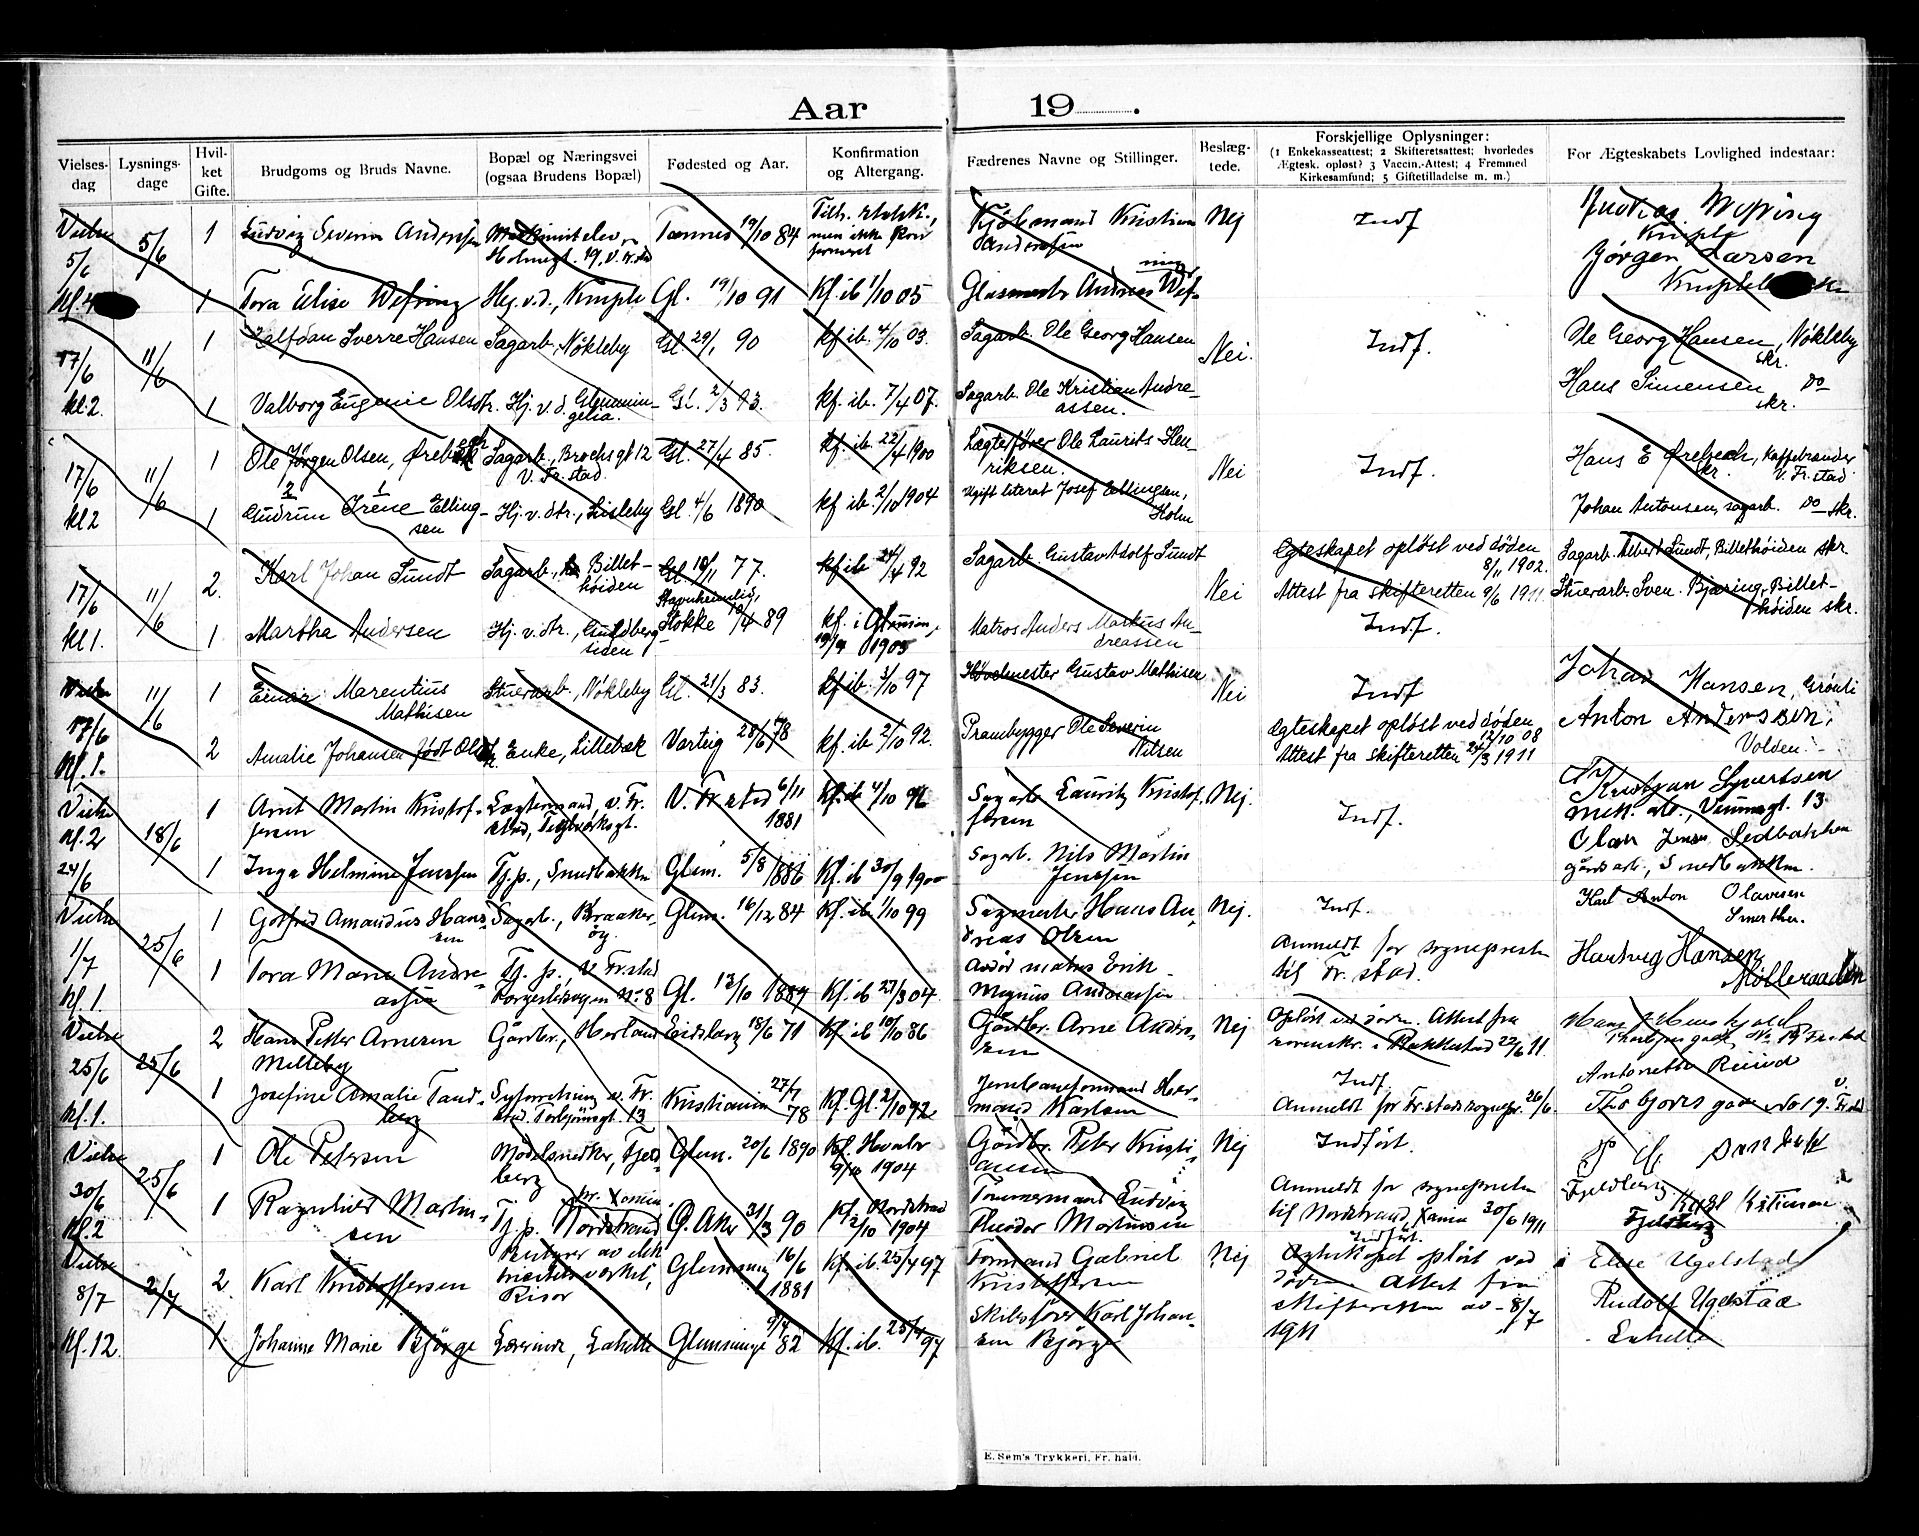 Aar 19 .
Vielses-dag
Lysnings-dage
Hvil-ket Gifte.
Brudgoms og Bruds Navne.
Bopæl og Næringsvei (ogsaa Brudens Bopæl)
Fødested og Aar.
Konfirmation og Altergang.
Fædrenes Navne og Stillinger.
Beslæg-tede.
Forskjellige Oplysninger:
(1 Enkekasseattest; 2 Skifteretsattest; hvorledes
Ægtesk. opløst? 3 Vaccin.-Attest; 4 Fremmed
Kirkesamfund; 5 Giftetilladelse m. m.)
For Ægteskabets Lovlighed indestaar:
Vielse 5/6 5/6 1 Ludvig Severin Anderssen Tønnes 19/10 84 Kjøbmand Kristian Anderssen Nej Indf
Kl. 4 1 Tora Elise Wefring Hj. v. d., Kniple Gl. 19/10 91 Kf. ib 1/10 05 Glasmester Andreas Wefring Jørgen Larsen
17/6 11/6 1 Halfdan Sverre Hansen Sagarb., Nøkleby Gl 29/1 90 kf ib. 4/10 03. Sagarb. Ole Georg Hansen Nei. Indf. Ole Georg Hansen, Nøkleby skr.
kl. 2. 1 Valborg Eugenie Olsdtr. Hj. v. d. Glemmin-gelia. Gl. 2/3 93. kf. ib. 7/4 07. Sagarb. Ole Kristian Andre-assen. Hans Simensen do skr.
17/6 11/6 1 Ole Jørgen Olsen, Ørebech Sagarb., Brochsgt 12 V. Fr. stad. Gl. 27/4 85. kf. ib. 22/4 1900 Lægterfører Ole Laurits Hen-riksen. Nei Indf. Hans E Ørebech, Kaffebrænder skr. V. Fr. stad
kl 2 1 Gudrun Irene Elling-sen Hj. v. dtr., Lisleby Gl. 4/6 1890 kf ib. 2/10 1904 Ugift literat Josef Ellingsen, Holm Johan Antonsen, sagarb. do skr.
17/6 11/6 2. Karl Johan Sundt Sagarb., Billet-høiden Gl 10/11 77. kf ib 24/4 92 Sagarb. Gustav Adolf Sundt Nei Egteskapet opløst ved døden 8/11 1902. Attest fra skifteretten 9/6 1911 Sagarb. Albert Sundt, Billethøiden skr.
kl 1. 1 Martha Andersen Hj. v. dtr., Guldberg-siden Stokke 10/4 89 kf. i Glemm., 1905 Matros Anders Markus An-dreassen Indf. Stuerarb. Sven. Bjøring, Billet-høiden skr.
Vielse 17/6 11/6 1 Einar Marentius Mathisen Stuerarb., Nøkleby Gl. 21/3 83. kf ib. 3/10 97 Høvlmester Gustav Mathisen Nei Indf Johan Hansen, Grønli
Kl. 1. 2 Amalie Johansen født Olsen Enke, Lillebæk Varteig 28/6 78 kf. ib. 2/10 92. Prambygger Ole Severin Nilsen Egteskapet opløst ved døden 12/10 08 Attest fra skifteretten 24/3 1911 Anton Anderssen, Volden
Vielse Kl. 2 24/6 18/6 1 Arnt Martin Kristof-fersen Lægtermand, v. Fr. stad, Teglverksgt. V. Fr stad 6/11 1881 Kf. ib 4/10 96 Sagarb Lauritz Kristof-fersen Nej. Indf. Kristjan Syvertsen mek. arb., 13
1 Inga Helmine Jenssen Tj. p., Smedbakken Glem. 5/8 1886 Kf. ib 30/9 1900 Sagarb. Nils Martin Jenssen Olav Jensen Sedbakken gårdsarb., Smedbakken
Vielse 1/7 25/6 1 Gotfred Amandus Hans-sen Sagarb., Kraaker-øy. Glem. 16/12 84 Kf. ib 1/10 99 Sagmester Hans An-dreas Olsen Nej. Indf. Karl Anton Olavesen
Kl. 1. 1 Tora Marie Andre-assen Tj. p., v Fr. stad Gl. 13/10 1887 Kf. ib 27/3 04. matros Erik Magnus Andreassen Anmeldt for sogneprsten til Fr. stad. Hartvig Hansen Mølleraaden
Vielse 25/6 25/6 2 Hans Petter Arnesen Milleby Gårdbr., Eidsberg 18/6 71 Kf ib 10/10 86 Gårdbr. Arne Anders-sen Nej Opløst ved døden. Attest fra sorenskr. i Rakkestad 22/6 11.
Kl. 1. 1 Josefine Amalie Tand-berg Syforretning v. Fr. stad Torbjørnsgt. 13 Kristiania 27/7 78 Kf. Gl. 2/10 92 Jernbaneformand Her-mand Karlsen Indf. Anmeldt for Fr. stads sognepr. 26/6. Antonette Thorbjørns gade No 19. v. Fr. stad
Vielse 30/6 25/6 1 Ole Petersen Modelsnedker, Fjeld-berg Glem. 20/6 1890 Kf. Hvaler 1904 Gårdbr. Peter Kristi-ansen Nej Indført.
Kl. 2 1 Ragnhild Martin-sen Tj. p. Nordstrand pr. Xania, Ø. Aker 31/3 90 Kf. Nordstrand 2/10 1904 Tømmermand Ludvig Theodor Martinsen Anmeldt for sogneprsten til Nordstrand, Xania 30/6 1911 Fjeldberg. Karl Kristiansen Fjeldberg
Vielse 8/7 2/7 2. Karl Kristoffersen Risør Glemminge 16/6 1881 Kf. ib. 25/4 97 Formand Gabriel Kristoffersen Nej Indført. Ægteskapet opløst ved døden Attest fra skifteretten av 8/7 1911 Elise Ugelstad
Kl. 12. 1 Johanne Marie Bjørge Lærerinde, Lahelle Glemminge 9/4 82 Kf. ib. 25/4 97 Skibsfører Karl Johan-sen Bjørge Rudolf Ugelstad Lahelle
E. Sem's Trykkeri, Fr. hald.